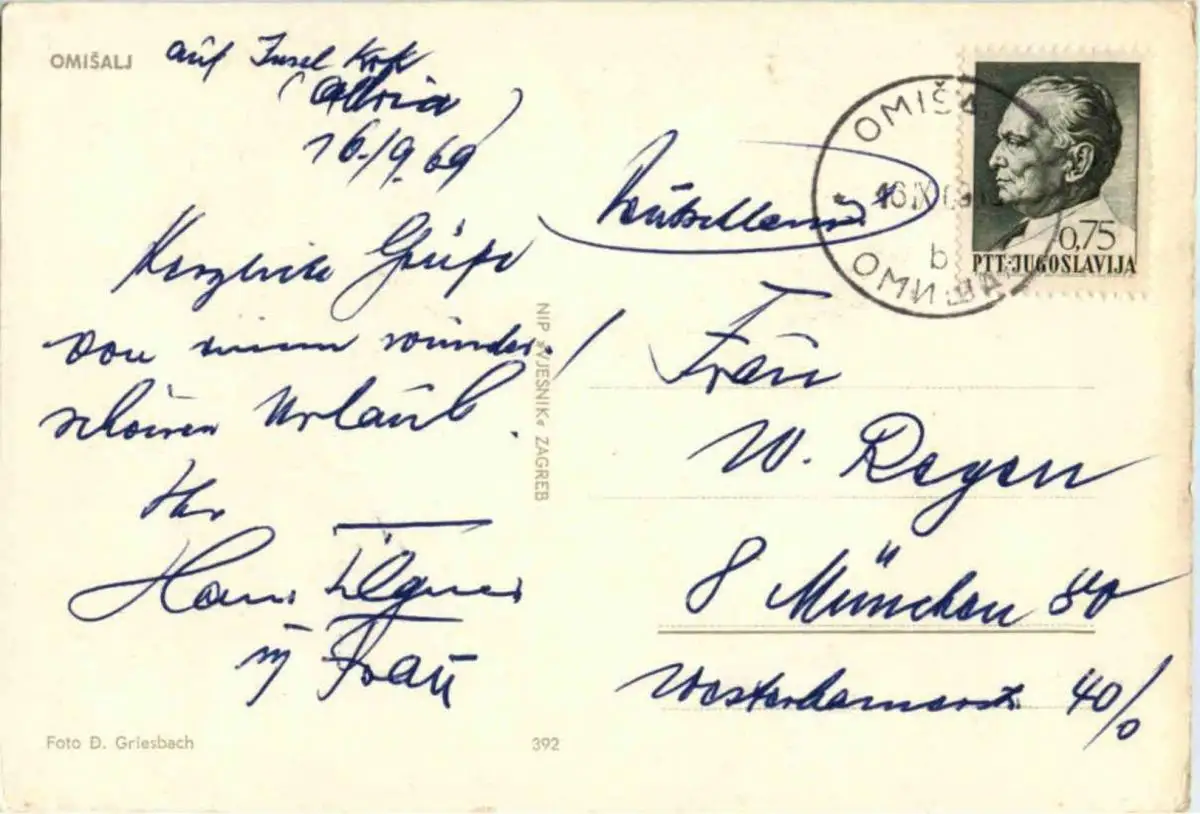 OMIŠALJ
auf Insel Krk
(Adria)
16./9.69
Herzliche Grüße
von einem wunder-
schönen Urlaub.
Ihr
Hans Ilgner
u Frau
Foto Đ. Griesbach
392
NIP »VJESNIK« ZAGREB
OMIŠA
16 IX 69
b
ОМИШАЉ
0,75
PTT·JUGOSLAVIJA
Deutschland
Frau
W. Regen
8 München 80
40/0